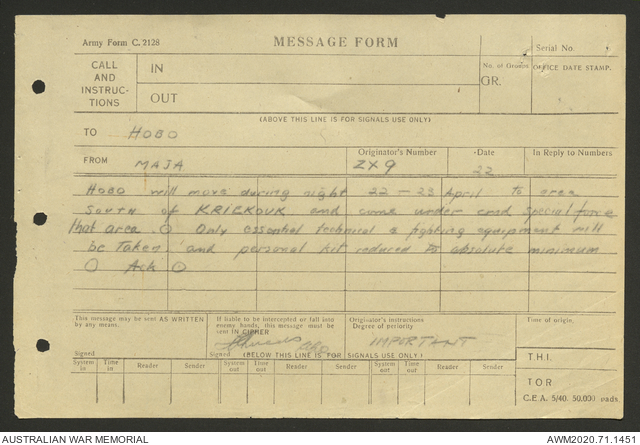 Army Form C. 2128
MESSAGE FORM
Serial No.
CALL AND INSTRUC-TIONS
IN
OUT
No. of Groups
GR.
OFFICE DATE STAMP.
(ABOVE THIS LINE IS FOR SIGNALS USE ONLY)
TO HOBO
FROM MAJA
Originator's Number ZX9
Date 22
In Reply to Numbers
HOBO will move during night 22 – 23 April to area
South of KRIEKOUK and come under cmd special force
that area. Only essential technical & fighting equipment will
be taken and personal kit reduced to absolute minimum
Ack
This message may be sent AS WRITTEN by any means.
Signed
If liable to be intercepted or fall into enemy hands, this message must be sent IN CIPHER
Signed
Originator's instructions
Degree of periority
IMPORTANT
Time of origin.
(BELOW THIS LINE IS FOR SIGNALS USE ONLY.)
System in Time in Reader Sender System out Time out Reader Sender System out Time out Reader Sender
T H I.
T O R
C.E.A. 5/40. 50,000 pads.
AUSTRALIAN WAR MEMORIAL
AWM2020.71.1451